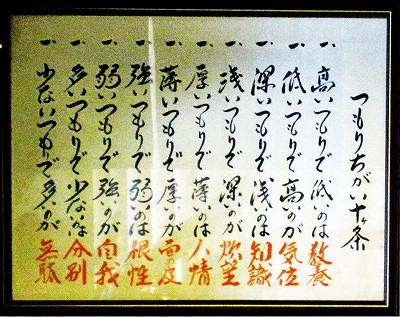 つもりちがい十ヶ条
一、高いつもりで低いのは教養
一、低いつもりで高いのが気位
一、深いつもりで浅いのは知識
一、浅いつもりで深いのが欲望
一、厚いつもりで薄いのは人情
一、薄いつもりで厚いのが面の皮
一、強いつもりで弱いのは根性
一、弱いつもりで強いのが自我
一、多いつもりで少ないのは分別
一、少ないつもりで多いのが無駄